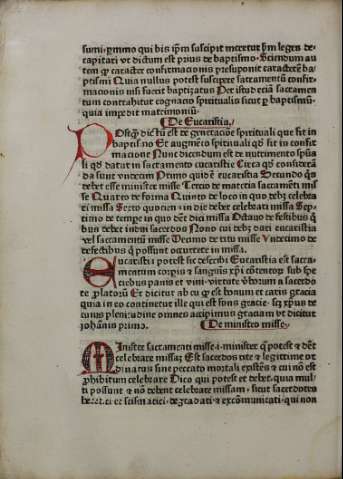 sumi. ymmo qui bis ipm̄ suscipit meretur ẜm leges de-
capitari vt dictum est prius de baptismo. Sciendum au
tem ꝙ caracter confirmacionis presuponit caracterē ba
ptismi Quia nullus potest suscipere sacramentū confir-
macionis nisi fuerit baptizatus Per istud eciā sacramen
tum contrahitur cognacio spiritualis sicut ꝑ baptismū.
quia impedit matrimoniū.
De Eucaristia.
Postꝙ̄ dictū est de generacione spirituali que fit in
baptismo Et augmēto spirituali qd̄ fit in confir
macione Nunc dicendum est de nutrimento spūa
li qd̄ datur in sacramento eucaristie Circa qd̄ considerā
da sunt vndecim Primo quid ē eucaristia Secundo qs̄
debet esse minister misse Tercio de materia sacramēti mis
se Quarto de forma Quinto de loco in quo debꝫ celebra
ri missa Sexto quociens in die debet celebrari missa Sep
timo de tempore in quo dēt dici missa Octauo de vestibus ꝗ
bus debet indui sacerdos Nono cui debꝫ dari eucaristia
vel sacramentū misse Decimo de ritu misse Vndecimo de
defectibus ꝗ possunt occurrere in missa.
Eucaristia potest sic describi Eucaristia est sacra-
mentum corpis ⁊ sanguis xp̄i cōtentoꝝ sub spe
ciebus panis et vini virtute verborum a sacerdo
te ꝓlatorū Et dicitur ab eu ꝙ est bonum et caris gracia
quia in eo continetur ille qui est fons gracie. sꝫ xp̄us de
cuius pleni-udine omnes accipimus graciam vt dicitur
iohānis primo.
De ministro misse.
Minister sacramenti misse .i. minister ꝗ potest ⁊ debꝫ
celebrare missaꝫ Est sacerdos rite ⁊ legittime or
dinatus sine peccato mortali existēs ⁊ cui nō est
ꝓhibitum celebrare Dico qui potest et debet. quia mul
ti possunt ⁊ nō debent celebrare missam. sicut sacerdotes
heretici et scismatici. degradati ⁊ excōmunicati. qui non